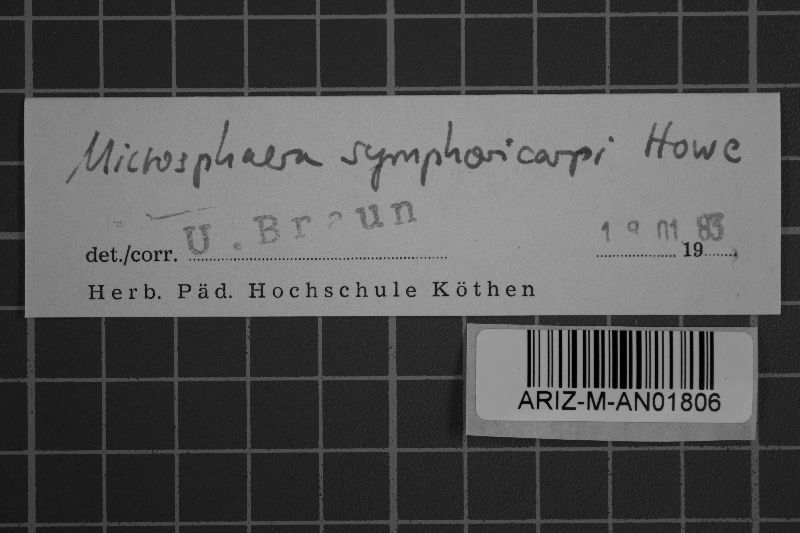 Microsphaera symphoricarpi Howe
det./corr. U. Braun 19 01 83 19
Herb. Päd. Hochschule Köthen
ARIZ-M-AN01806